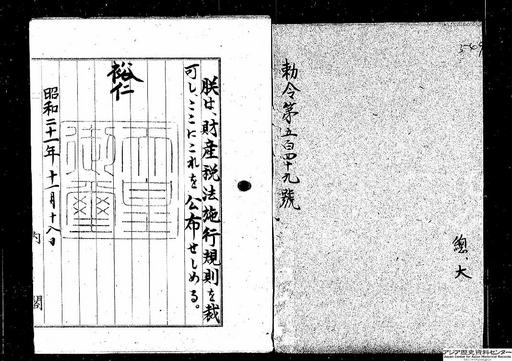 勅令第五百四十九號
總、大
549
朕は、財産税法施行規則を裁
可し、ここにこれを公布せしめる。
裕仁
天皇
御璽
昭和二十一年十一月十八日
内閣
アジア歴史資料センター
Japan Center for Asian Historical Records